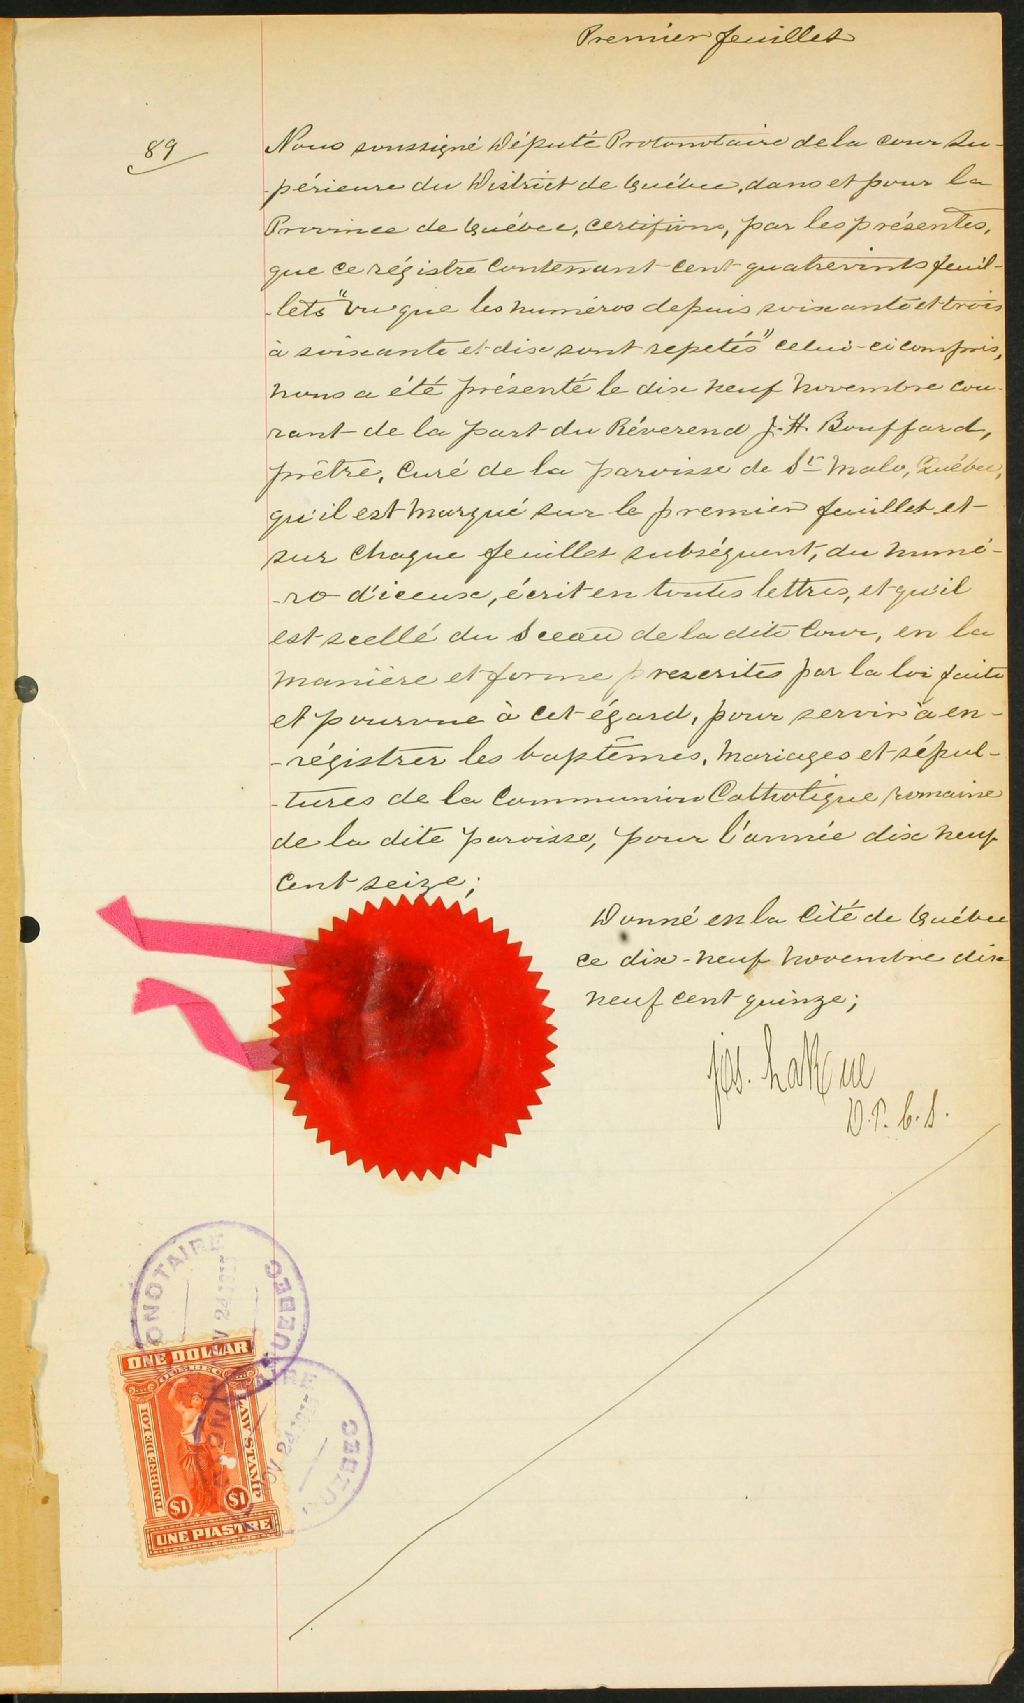 Premier feuillet
89
Nous soussigné Député Protonotaire de la cour Su-
-périeure du District de Québec, dans et pour la
Province de Québec, certifions, par les présentes,
que ce régistre contenant cent quatrevints feuil-
-lets "vu que les numéros depuis soixante et trois
à soixante et dix sont repetés" celui-ci compris,
nous a été présenté le dix neuf Novembre cou-
rant de la part du Réverend J. H. Bouffard,
prêtre, Curé de la paroisse de St Malo, Québec,
qu'il est marqué sur le premier feuillet et
sur chaque feuillet subséquent, du numé-
-ro d'iceux, écrit en toutes lettres, et qu'il
est scellé du Sceau de la dite Cour, en la
manière et forme prescrites par la loi faite
et pourvue à cet égard, pour servir à en-
-régistrer les baptêmes, Mariages et sépul-
-tures de la Communion Catholique romaine
de la dite paroisse, pour l'année dix neuf
Cent seize;
Donné en la Cité de Québec
ce dix-neuf Novembre dix
neuf cent quinze;
Jos. LaRue
D.P.C.S.
ONOTAIRE
QUEBEC
V 24 1915
ONE DOLLAR
QUEBEC
TIMBRE DE LOI
LAW STAMP
$1 $1
UNE PIASTRE
NOV 24 1915
QUEBEC